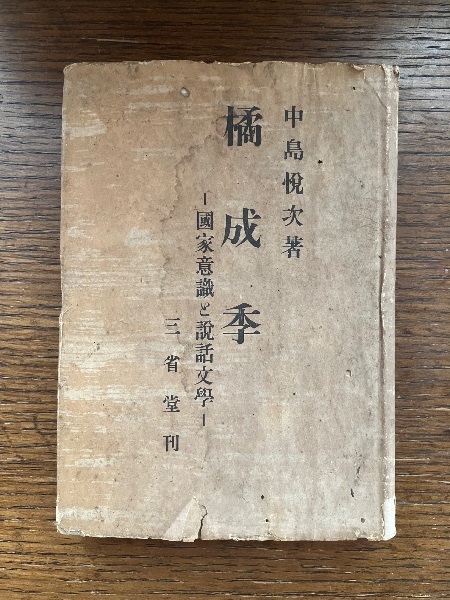 中島悅次著
橘成季
―國家意識と說話文學―
三省堂刊